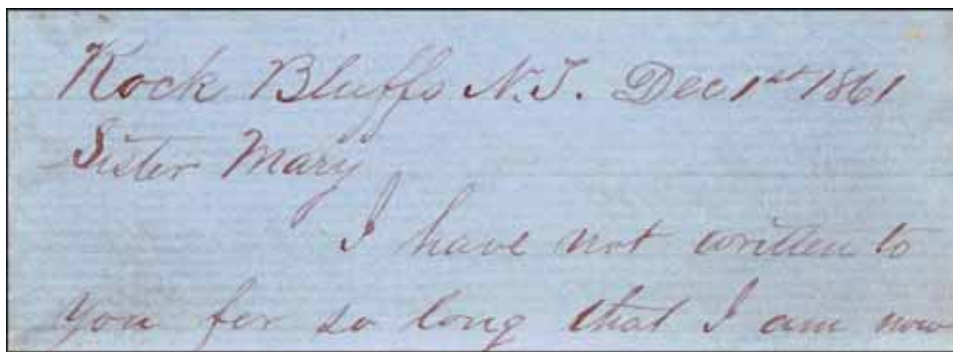 Rock Bluffs N.T. Dec 1st 1861
Sister Mary
I have not written to
you for so long that I am now